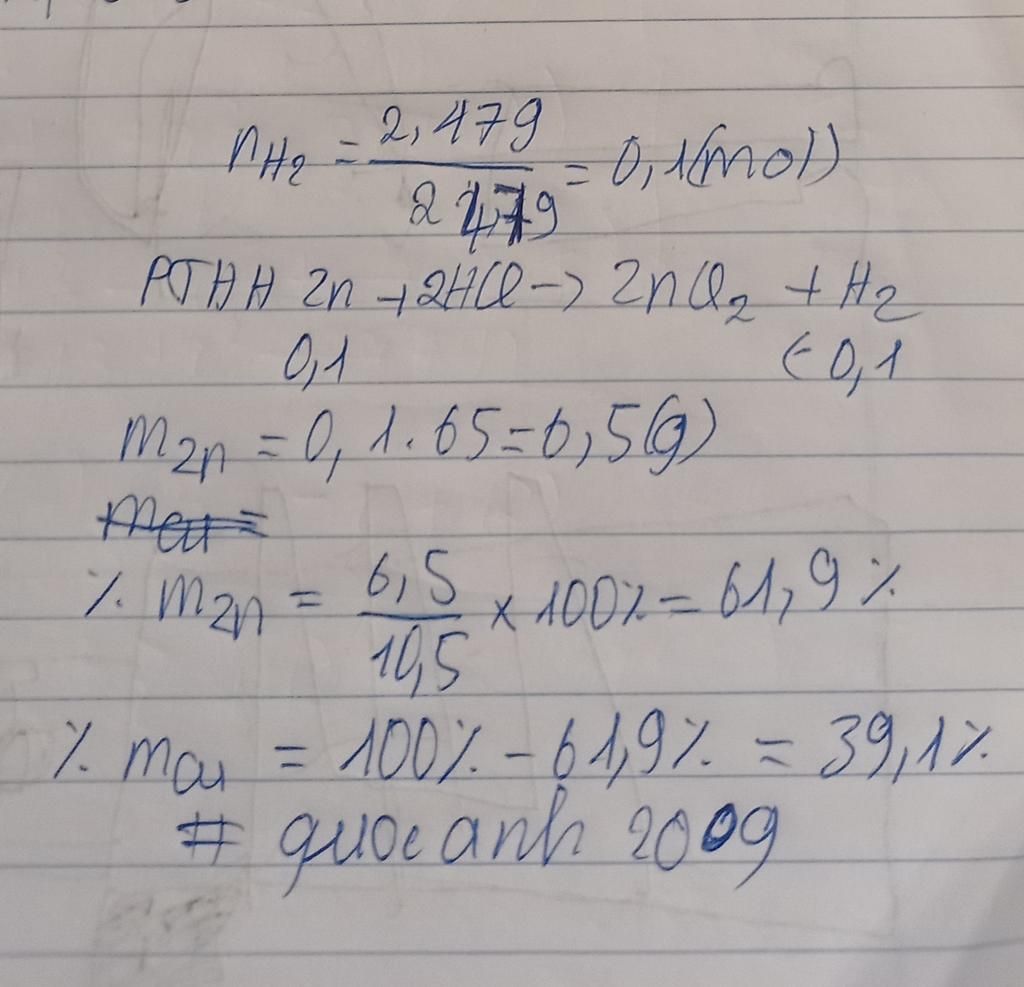 nH2 = 2,479 / 24,79 = 0,1(mol)
PTHH Zn + 2HCl -> ZnCl2 + H2
0,1 <- 0,1
mZn = 0,1.65=6,5(g)
mCu =
% mZn = 6,5 / 10,5 x 100% = 61,9 %
% mCu = 100% - 61,9% = 39,1%
# quocanh 2009